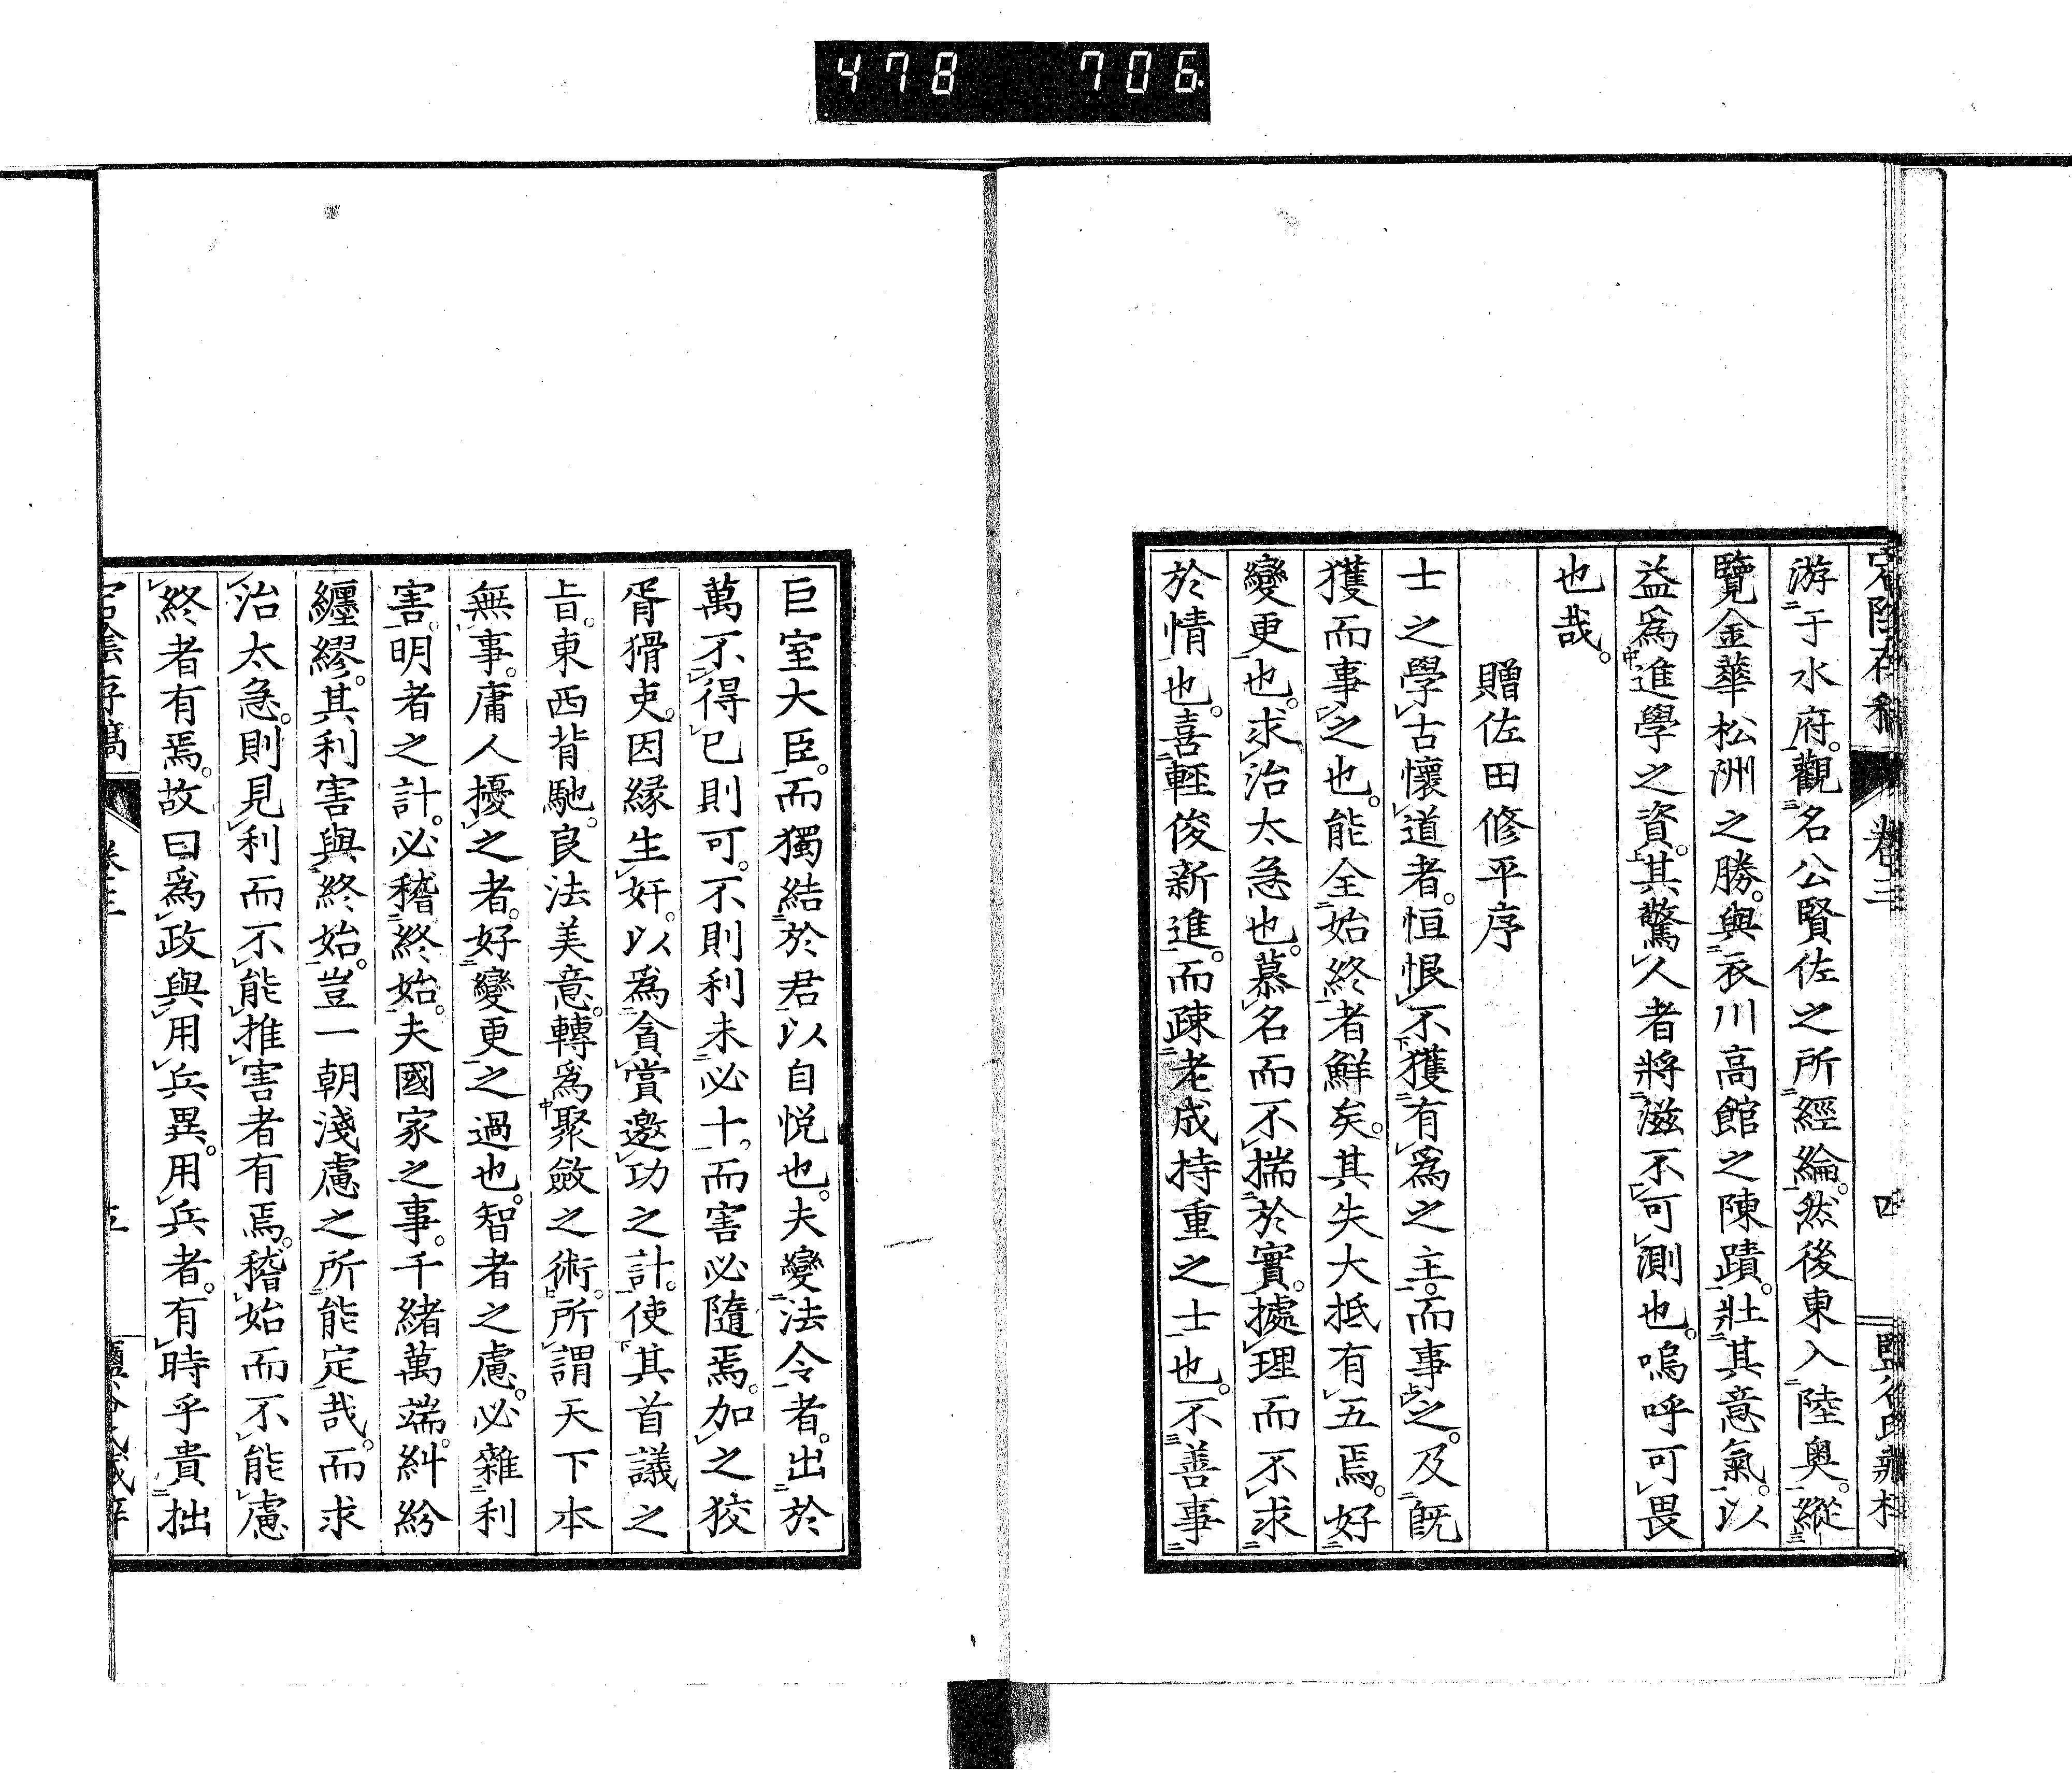 478 706
卷三 四
游于水府。觀名公賢佐之所經綸。然後東入陸奥。縱
覽金華松洲之勝。與衣川高館之陳蹟。壯其意氣。以
益爲進學之資。其驚人者將滋不可測也。嗚呼可畏
也哉。
贈佐田修平序
士之學古懷道者。恒恨不獲有爲之主。而事之。及既
獲而事之也。能全始終者鮮矣。其失大抵有五焉。好
變更也。求治太急也。慕名而不揣於實。據理而不求
於情也。喜輕俊新進。而疎老成持重之士也。不善事
巨室大臣。而獨結於君以自悦也。夫變法令者。出於
萬不得已則可。不則利未必十。而害必隨焉。加之狡
胥猾吏。因縁生奸。以爲貪賞邀功之計。使其首議之
旨。東西背馳。良法美意。轉爲聚斂之術。所謂天下本
無事。庸人擾之者。好變更之過也。智者之慮。必雜利
害。明者之計。必稽終始。夫國家之事。千緒萬端。糾紛
纏繆。其利害與終始。豈一朝淺慮之所能定哉。而求
治太急。則見利而不能推害者有焉。稽始而不能慮
終者有焉。故曰爲政與用兵異。用兵者。有時乎貴拙